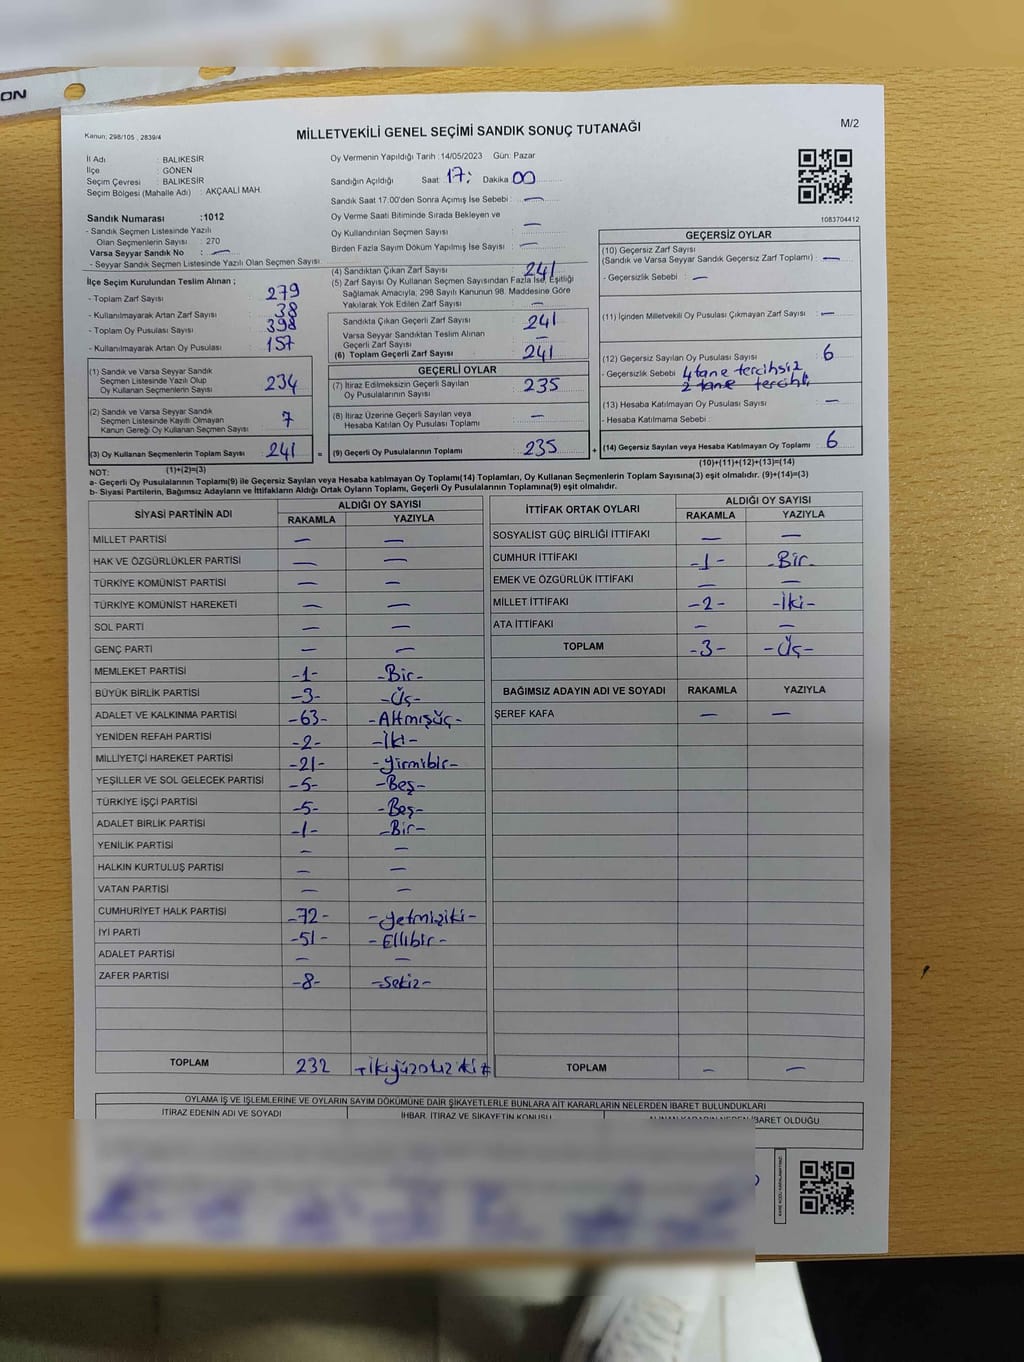 ON
Kanun; 298/105 , 2839/4
MİLLETVEKİLİ GENEL SEÇİMİ SANDIK SONUÇ TUTANAĞI
M/2
İl Adı : BALIKESİR
İlçe : GÖNEN
Seçim Çevresi : BALIKESİR
Seçim Bölgesi (Mahalle Adı) : AKÇAALİ MAH.
Sandık Numarası :1012
- Sandık Seçmen Listesinde Yazılı
Olan Seçmenlerin Sayısı : 270
Varsa Seyyar Sandık No : —
- Seyyar Sandık Seçmen Listesinde Yazılı Olan Seçmen Sayısı
İlçe Seçim Kurulundan Teslim Alınan ;
- Toplam Zarf Sayısı 279
- Kullanılmayarak Artan Zarf Sayısı 38
- Toplam Oy Pusulası Sayısı 398
- Kullanılmayarak Artan Oy Pusulası 157
(1) Sandık ve Varsa Seyyar Sandık
Seçmen Listesinde Yazılı Olup
Oy Kullanan Seçmenlerin Sayısı 234
(2) Sandık ve Varsa Seyyar Sandık
Seçmen Listesinde Kayıtlı Olmayan
Kanun Gereği Oy Kullanan Seçmen Sayısı 7
(3) Oy Kullanan Seçmenlerin Toplam Sayısı 241 =
(1)+(2)=(3)
Oy Vermenin Yapıldığı Tarih :14/05/2023 Gün: Pazar
Sandığın Açıldığı Saat 17: Dakika 00
Sandık Saat 17:00'den Sonra Açımış İse Sebebi : —
Oy Verme Saati Bitiminde Sırada Bekleyen ve
Oy Kullandırılan Seçmen Sayısı : —
Birden Fazla Sayım Döküm Yapılmış İse Sayısı : —
(4) Sandıktan Çıkan Zarf Sayısı : 241
(5) Zarf Sayısı Oy Kullanan Seçmen Sayısından Fazla İse, Eşitliği
Sağlamak Amacıyla; 298 Sayılı Kanunun 98. Maddesine Göre
Yakılarak Yok Edilen Zarf Sayısı : —
Sandıkta Çıkan Geçerli Zarf Sayısı : 241
Varsa Seyyar Sandıktan Teslim Alınan
Geçerli Zarf Sayısı : —
(6) Toplam Geçerli Zarf Sayısı : 241
GEÇERLİ OYLAR
(7) İtiraz Edilmeksizin Geçerli Sayılan
Oy Pusulalarının Sayısı : 235
(8) İtiraz Üzerine Geçerli Sayılan veya
Hesaba Katılan Oy Pusulası Toplamı : —
(9) Geçerli Oy Pusulalarının Toplamı : 235 +
1083704412
GEÇERSİZ OYLAR
(10) Geçersiz Zarf Sayısı
(Sandık ve Varsa Seyyar Sandık Geçersiz Zarf Toplamı) : —
- Geçersizlik Sebebi : —
(11) İçinden Milletvekili Oy Pusulası Çıkmayan Zarf Sayısı : —
(12) Geçersiz Sayılan Oy Pusulası Sayısı : 6
- Geçersizlik Sebebi : 4 tane tercihsiz
2 tane tercihli
(13) Hesaba Katılmayan Oy Pusulası Sayısı : —
- Hesaba Katılmama Sebebi :
(14) Geçersiz Sayılan veya Hesaba Katılmayan Oy Toplamı : 6
(10)+(11)+(12)+(13)=(14)
NOT:
a- Geçerli Oy Pusulalarının Toplamı(9) ile Geçersiz Sayılan veya Hesaba katılmayan Oy Toplamı(14) Toplamları, Oy Kullanan Seçmenlerin Toplam Sayısına(3) eşit olmalıdır. (9)+(14)=(3)
b- Siyasi Partilerin, Bağımsız Adayların ve İttifakların Aldığı Ortak Oyların Toplamı, Geçerli Oy Pusulalarının Toplamına(9) eşit olmalıdır.
SİYASİ PARTİNİN ADI ALDIĞI OY SAYISI
RAKAMLA YAZIYLA
MİLLET PARTİSİ — —
HAK VE ÖZGÜRLÜKLER PARTİSİ — —
TÜRKİYE KOMÜNİST PARTİSİ — —
TÜRKİYE KOMÜNİST HAREKETİ — —
SOL PARTİ — —
GENÇ PARTİ — —
MEMLEKET PARTİSİ -1- -Bir-
BÜYÜK BİRLİK PARTİSİ -3- -Üç-
ADALET VE KALKINMA PARTİSİ -63- -Altmışüç-
YENİDEN REFAH PARTİSİ -2- -İki-
MİLLİYETÇİ HAREKET PARTİSİ -21- -yirmibir-
YEŞİLLER VE SOL GELECEK PARTİSİ -5- -Beş-
TÜRKİYE İŞÇİ PARTİSİ -5- -Beş-
ADALET BİRLİK PARTİSİ -1- -Bir-
YENİLİK PARTİSİ — —
HALKIN KURTULUŞ PARTİSİ — —
VATAN PARTİSİ — —
CUMHURİYET HALK PARTİSİ -72- -yetmişiki-
İYİ PARTİ -51- -Ellibir-
ADALET PARTİSİ — —
ZAFER PARTİSİ -8- -Sekiz-
TOPLAM 232 -ikiyüzotuziki#
İTTİFAK ORTAK OYLARI ALDIĞI OY SAYISI
RAKAMLA YAZIYLA
SOSYALİST GÜÇ BİRLİĞİ İTTİFAKI — —
CUMHUR İTTİFAKI -1- -Bir-
EMEK VE ÖZGÜRLÜK İTTİFAKI — —
MİLLET İTTİFAKI -2- -İki-
ATA İTTİFAKI — —
TOPLAM -3- -Üç-
BAĞIMSIZ ADAYIN ADI VE SOYADI RAKAMLA YAZIYLA
ŞEREF KAFA — —
TOPLAM — —
OYLAMA İŞ VE İŞLEMLERİNE VE OYLARIN SAYIM DÖKÜMÜNE DAİR ŞİKAYETLERLE BUNLARA AİT KARARLARIN NELERDEN İBARET BULUNDUKLARI
İTİRAZ EDENİN ADI VE SOYADI İHBAR, İTİRAZ VE ŞİKAYETİN KONUSU ALINAN KARARIN NEDEN İBARET OLDUĞU